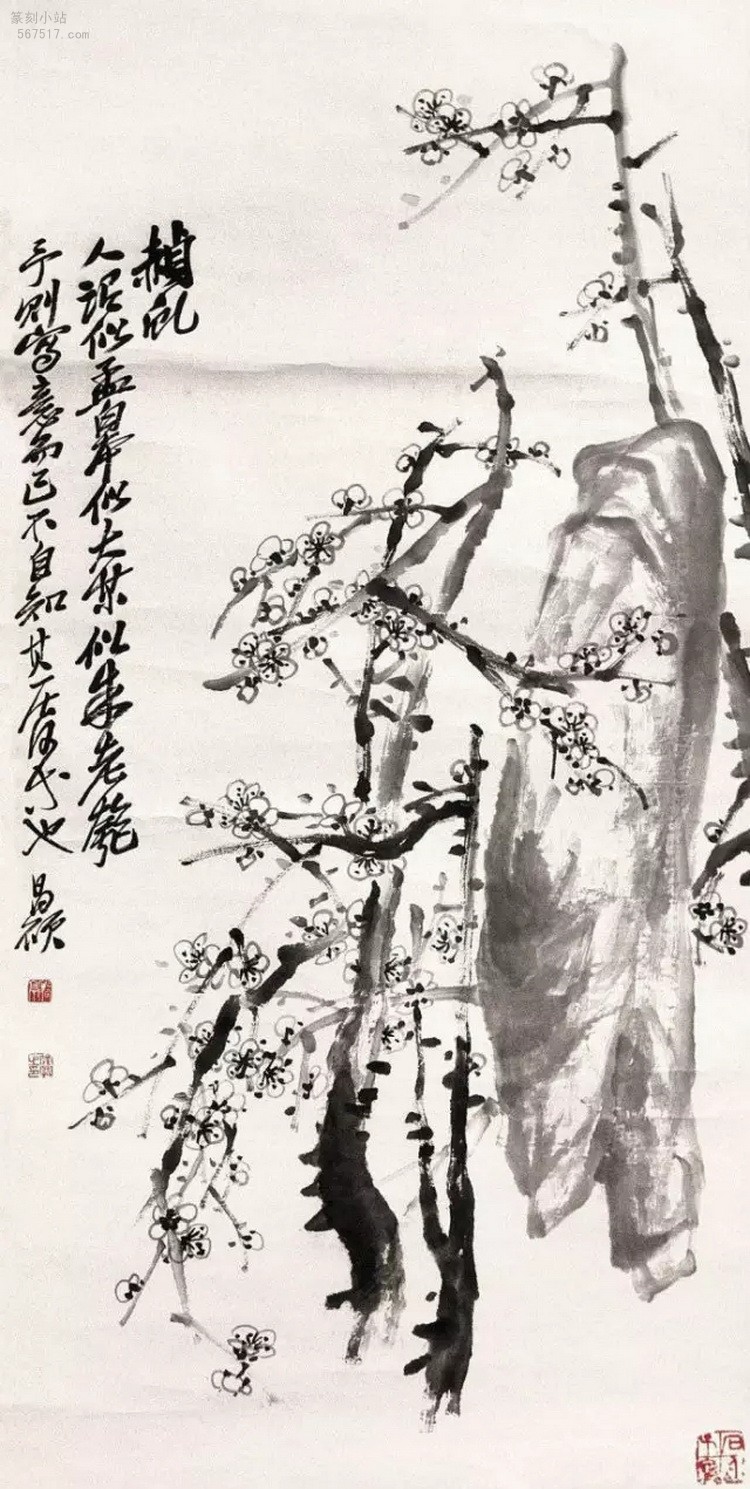 篆刻小站
567517.com
赬虬
人謂似孟皋似大某似朱老匏
予則寫意而已不自知其何等也
昌碩